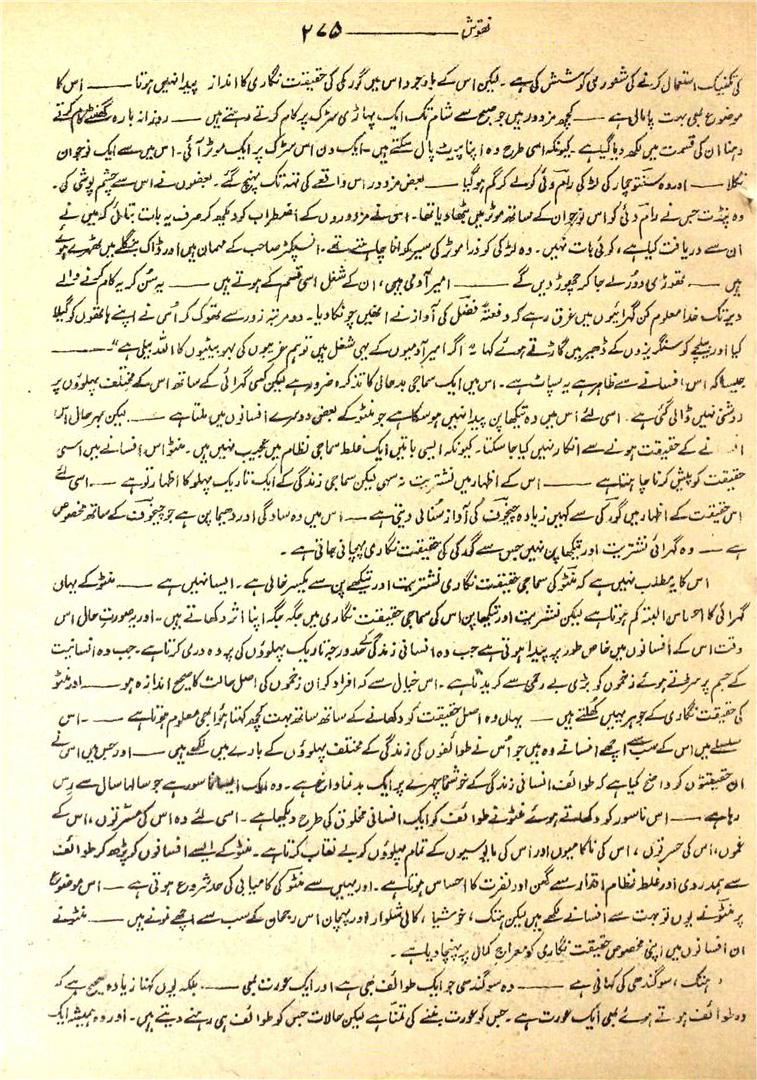 نقوش ــــــــــ ۲۷۵
کی تکنیک استعمال کرنے کی شعوری کوشش کی ہے ۔ لیکن اس کے باوجود اس میں گورکی کی حقیقت نگاری کا انداز پیدا نہیں ہوتا ــــــ اس کا
موضوع بھی بہت پامالی ہے ــــ کچھ مزدور ہیں جو صبح سے شام تک ایک پہاڑی سڑک پر کام کرتے رہتے ہیں ــــ روزانہ بارہ گھنٹے کام کرتے
رہنا ان کی قسمت میں لکھ دیا گیا ہے ۔ کیونکہ اسی طرح وہ اپنا پیٹ پال سکتے ہیں ۔ ایک دن اس سڑک پر ایک موٹر آئی ۔ اس میں سے ایک نوجوان
نکلا ــــ اور وہ سنتو چمار کی لڑکی رام دئی کو لے کر گم ہو گیا ــــ بعض مزدور اس واقعے کی تہہ تک پہنچ گئے ۔ بعضوں نے اس سے چشم پوشی کی ۔
وہ پنڈت جس نے رام دئی کو اس نوجوان کے ساتھ موٹر میں بٹھا دیا تھا ۔ اسی نے مزدوروں کے اضطراب کو دیکھ کر صرف یہ بات بتائی کہ میں نے
ان سے دریافت کیا ہے ، کوئی بات نہیں ۔ وہ لڑکی کو ذرا موٹر کی سیر کرانا چاہتے تھے ۔ انسپکٹر صاحب کے مہمان ہیں اور ڈاک بنگلے میں ٹھہرے ہوئے
ہیں ــــ تھوڑی دور لے جا کر چھوڑ دیں گے ــــ امیر آدمی ہیں ، ان کے شغل اسی قسم کے ہوتے ہیں ــــ یہ سُن کر یہ کام کرنے والے
دیر تک خدا معلوم کن گہرائیوں میں غرق رہے کہ دفعتہً فضل کی آواز نے انھیں چونکا دیا ۔ دو مرتبہ زور سے تھوک کر اُس نے اپنے ہاتھوں کو گیلا
کیا اور بیلچے کو سنگریزوں کے ڈھیر میں گاڑتے ہوئے کہا " اگر امیر آدمیوں کے یہی شغل ہیں تو ہم غریبوں کی بہو بیٹیوں کا اللہ بیلی ہے " ــــ
جیسا کہ اس افسانے سے ظاہر ہے یہ سپاٹ ہے ۔ اس میں ایک سماجی بدحالی کا تذکرہ ضرور ہے لیکن کسی گہرائی کے ساتھ اس کے مختلف پہلوؤں پر
روشنی نہیں ڈالی گئی ہے ۔ اسی لئے اس میں وہ تیکھا پن پیدا نہیں ہو سکا ہے جو منٹو کے بعض دوسرے افسانوں میں ملتا ہے ــــ لیکن بہرحال اس
افسانے کے حقیقت ہونے سے انکار نہیں کیا جا سکتا ۔ کیونکہ ایسی باتیں ایک غلط سماجی نظام میں عجیب نہیں ہیں ۔ منٹو اس افسانے میں اسی
حقیقت کو پیش کرنا چاہتا ہے ــــ اس کے اظہار میں نشتریت نہ سہی لیکن سماجی زندگی کے ایک تاریک پہلو کا اظہار تو ہے ــــ اسی لئے
اس حقیقت کے اظہار میں گورکی سے کہیں زیادہ چیخوف کی آواز سُنائی دیتی ہے ــــ اس میں وہ سادگی اور دھیما پن ہے جو چیخوف کے ساتھ مخصوص
ہے ــــ وہ گہرائی نشتریت اور تیکھا پن نہیں جس سے گورکی کی حقیقت نگاری پہچانی جاتی ہے ۔
اس کا یہ مطلب نہیں ہے کہ منٹو کی سماجی حقیقت نگاری نشتریت اور تیکھے پن سے یکسر خالی ہے ۔ ایسا نہیں ہے ــــ منٹو کے یہاں
گہرائی کا احساس البتہ کم ہوتا ہے لیکن نشتریت اور تیکھا پن اس کی سماجی حقیقت نگاری میں جگہ جگہ اپنا اثر دکھاتے ہیں ۔ اور یہ صورتِ حال اس
وقت اس کے افسانوں میں خاص طور پر پیدا ہوتی ہے جب وہ انسانی زندگی کے حد درجہ تاریک پہلوؤں کی پردہ دری کرتا ہے ۔ جب وہ انسانیت
کے جسم پر سڑتے ہوئے زخموں کو بڑی بے رحمی سے کریدتا ہے ۔ اس خیال سے کہ افراد کو ان زخموں کی اصل حالت کا صحیح اندازہ ہو ــــ اور منٹو
کی حقیقت نگاری کے جوہر یہیں کُھلتے ہیں ــــ یہاں وہ اصل حقیقت کو دکھانے کے ساتھ ساتھ بہت کچھ کہتا ہوا بھی معلوم ہوتا ہے ــــ اس
سلسلے میں اس کے سب سے اچھے افسانے وہ ہیں جو اُس نے طوائفوں کی زندگی کے مختلف پہلوؤں کے بارے میں لکھے ہیں ــــ اور جن میں اُس نے
ان حقیقتوں کو واضح کیا ہے کہ طوائف انسانی زندگی کے خوشنما چہرے پر ایک بدنما داغ ہے ۔ وہ ایک ایسا ناسور ہے جو سالہا سال سے رِس
رہا ہے ــــ اس ناسور کو دکھاتے ہوئے منٹو نے طوائف کو ایک انسانی مخلوق کی طرح دیکھا ہے ۔ اسی لئے وہ اس کی مسرتوں ، اس کے
غموں ، اس کی حسرتوں ، اس کی ناکامیوں اور اس کی مایوسیوں کے تمام پہلوؤں کو بے نقاب کرتا ہے ۔ منٹو کے ایسے افسانوں کو پڑھ کر طوائف
سے ہمدردی اور غلط نظامِ اقدار سے گھن اور نفرت کا احساس ہوتا ہے ۔ اور یہیں سے منٹو کی کامیابی کی حد شروع ہوتی ہے ــــ اس موضوع
پر منٹو نے یوں تو بہت سے افسانے لکھے ہیں لیکن ہتک ، خوشیا ، کالی شلوار اور پہچان اس رجحان کے سب سے اچھے نمونے ہیں ــــ منٹو نے
ان افسانوں میں اپنی مخصوص حقیقت نگاری کو معراجِ کمال پر پہنچا دیا ہے ۔
' ہتک ، سوگندھی کی کہانی ہے ــــ وہ سوگندھی جو ایک طوائف بھی ہے اور ایک عورت بھی ــــ بلکہ یوں کہنا زیادہ صحیح ہے کہ
وہ طوائف ہوتے ہوئے بھی ایک عورت ہے ۔ جس کو عورت بننے کی تمنا ہے لیکن حالات جس کو طوائف ہی رہنے دیتے ہیں ۔ اور وہ ہمیشہ ایک